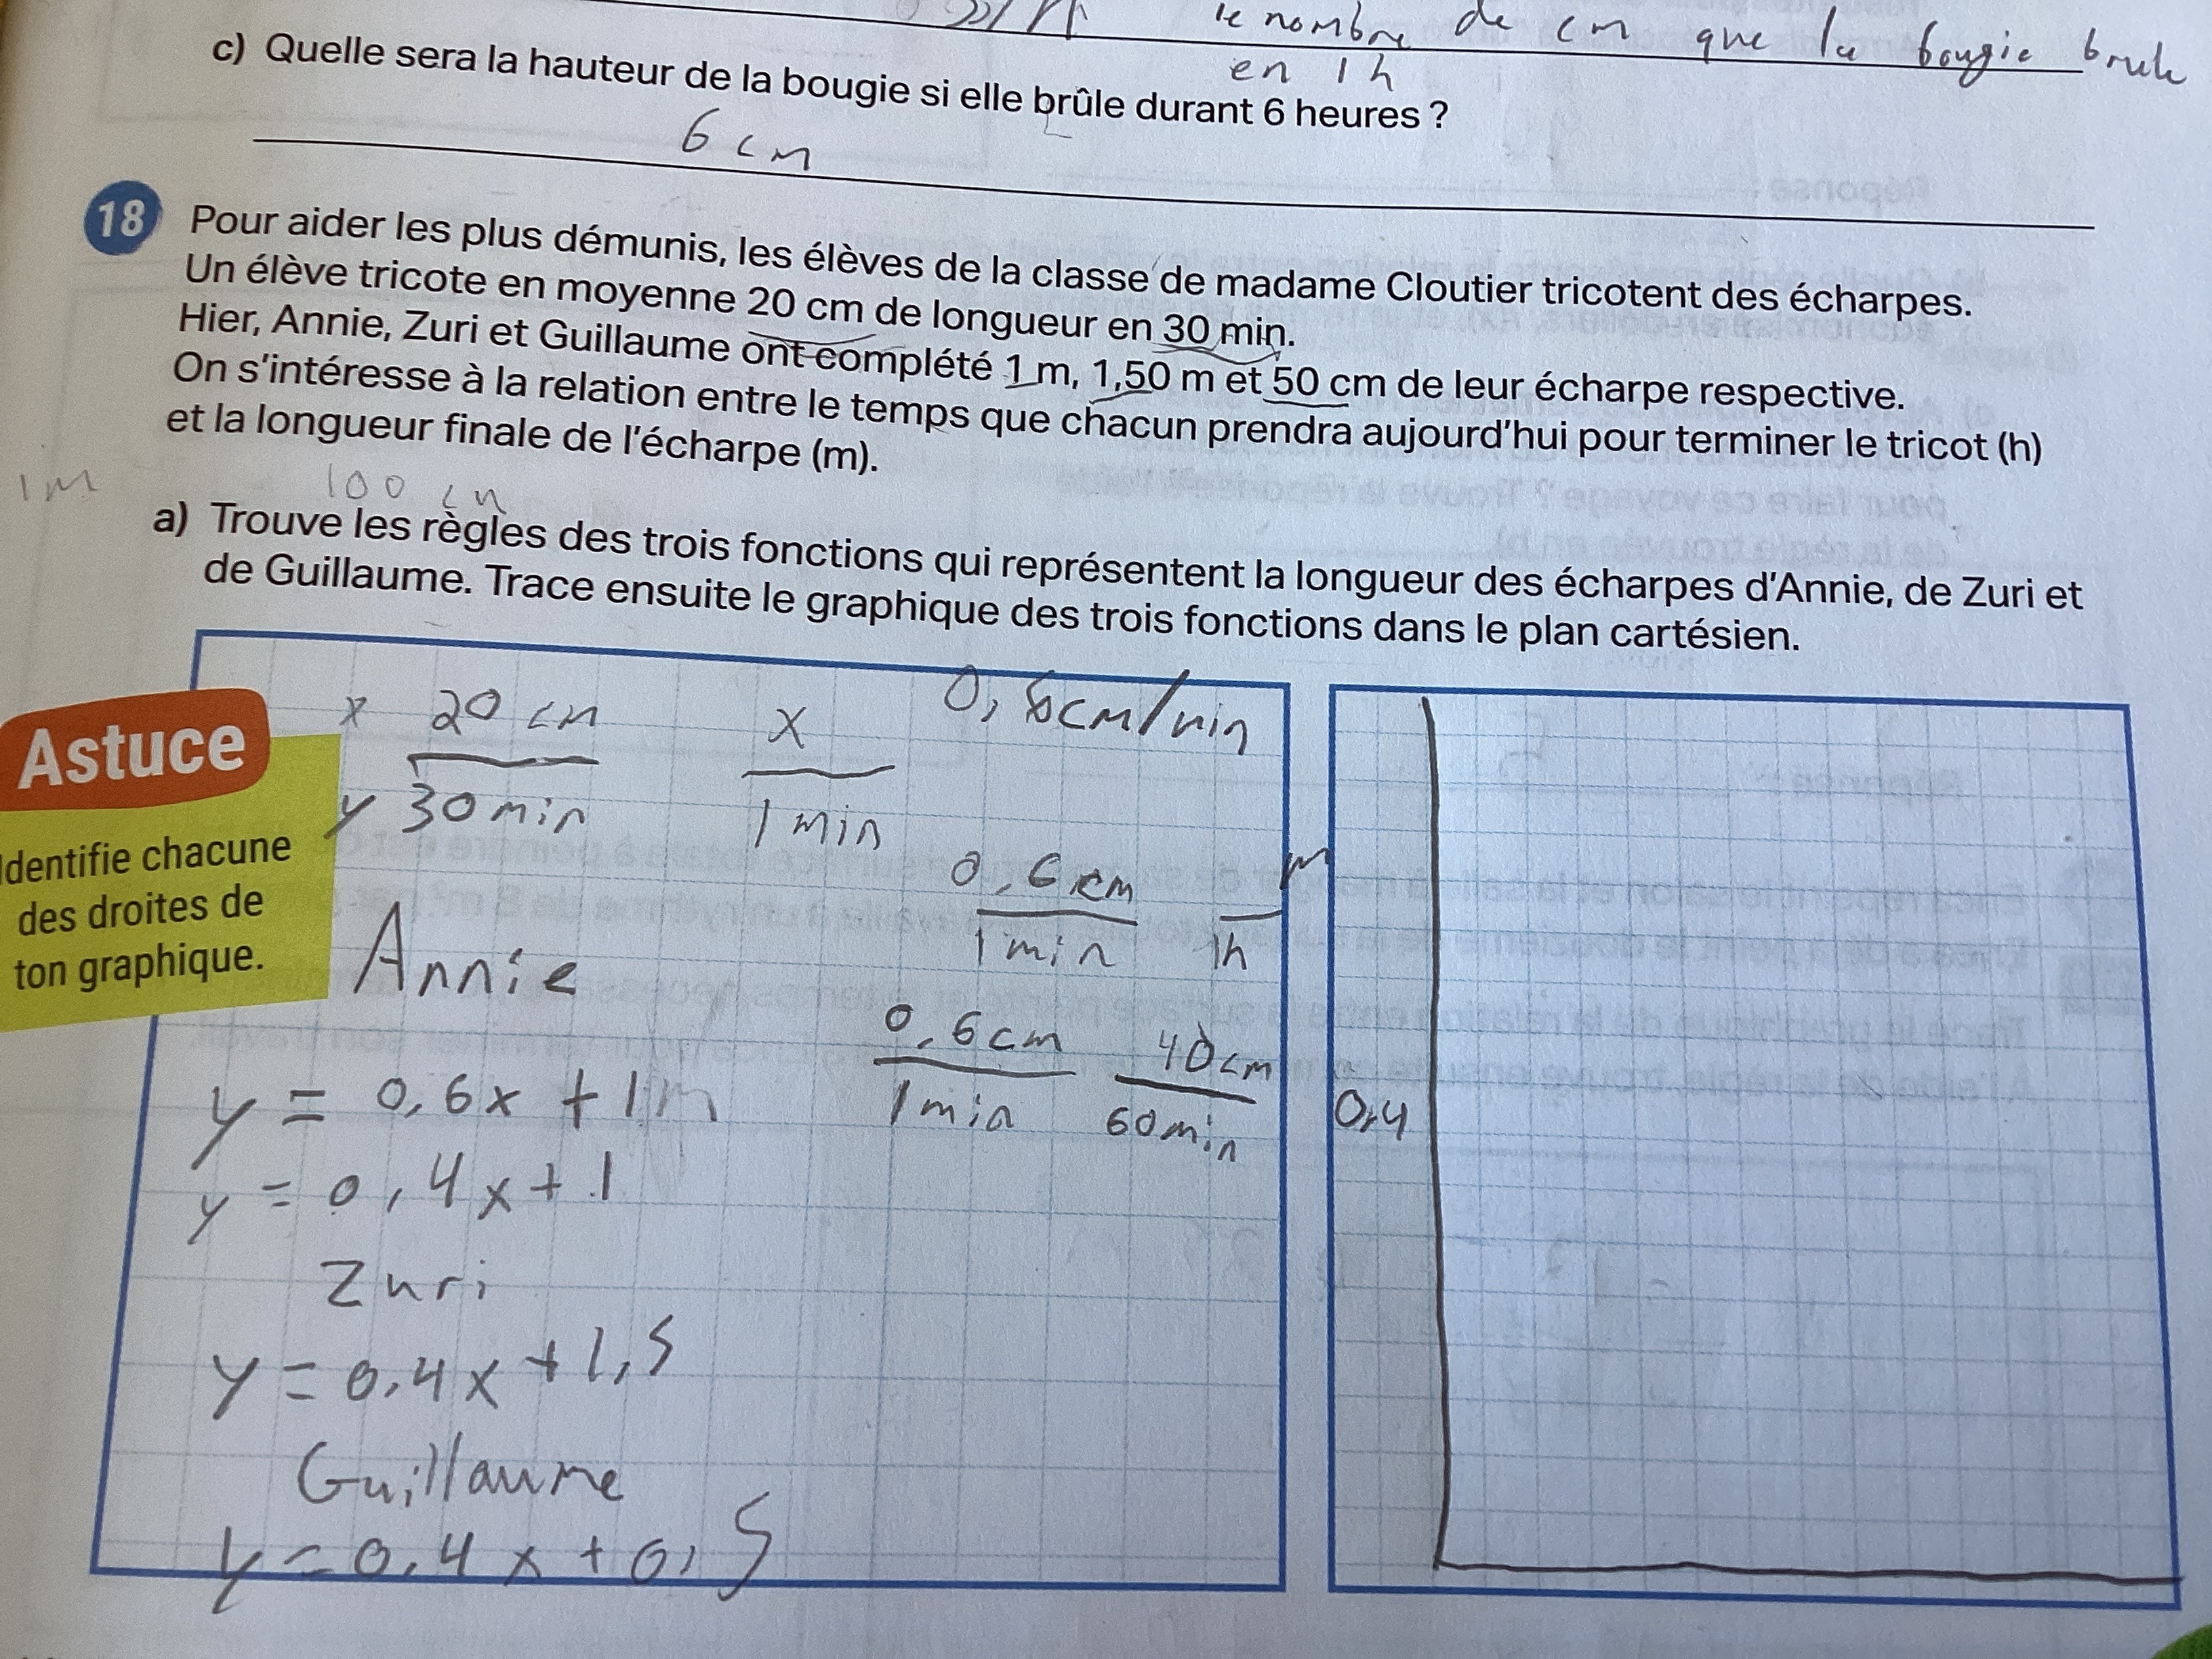 le nombre de cm que la bougie brule
en 1h
c) Quelle sera la hauteur de la bougie si elle brûle durant 6 heures ?
6 cm
18 Pour aider les plus démunis, les élèves de la classe de madame Cloutier tricotent des écharpes.
Un élève tricote en moyenne 20 cm de longueur en 30 min.
Hier, Annie, Zuri et Guillaume ont complété 1 m, 1,50 m et 50 cm de leur écharpe respective.
On s'intéresse à la relation entre le temps que chacun prendra aujourd'hui pour terminer le tricot (h)
et la longueur finale de l'écharpe (m).
1m 100 cm
a) Trouve les règles des trois fonctions qui représentent la longueur des écharpes d'Annie, de Zuri et
de Guillaume. Trace ensuite le graphique des trois fonctions dans le plan cartésien.
Astuce
Identifie chacune
des droites de
ton graphique.
x 20 cm x 0,6cm/min
y 30 min 1 min
0,6 cm m
1 min 1h
Annie
0,6cm 40cm
1min 60min
y = 0,6x + 1m
y = 0,4x + 1
Zuri
y = 0,4x + 1,5
Guillaume
y = 0,4x + 0,5
0,4